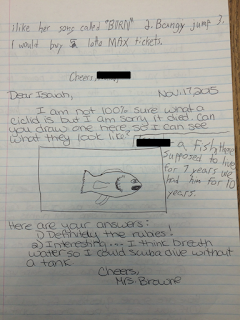 I like her song called "BORN" 2. Bcangy jump 3.
I would buy 2 lotto MAX tickets.
Cheers,
Dear Isaiah, Nov. 17, 2015
I am not 100% sure what a
ciclid is but I am sorry it died. Can
you draw one here, so I can see
what they look like?
a fish, there
supposed to live
for 7 years we
had him for 10
years.
Here are your answers:
1) Definitely the rubies!
2) Interesting... I think breath
water so I could scuba dive without
a tank.
Cheers,
Mrs. Browne